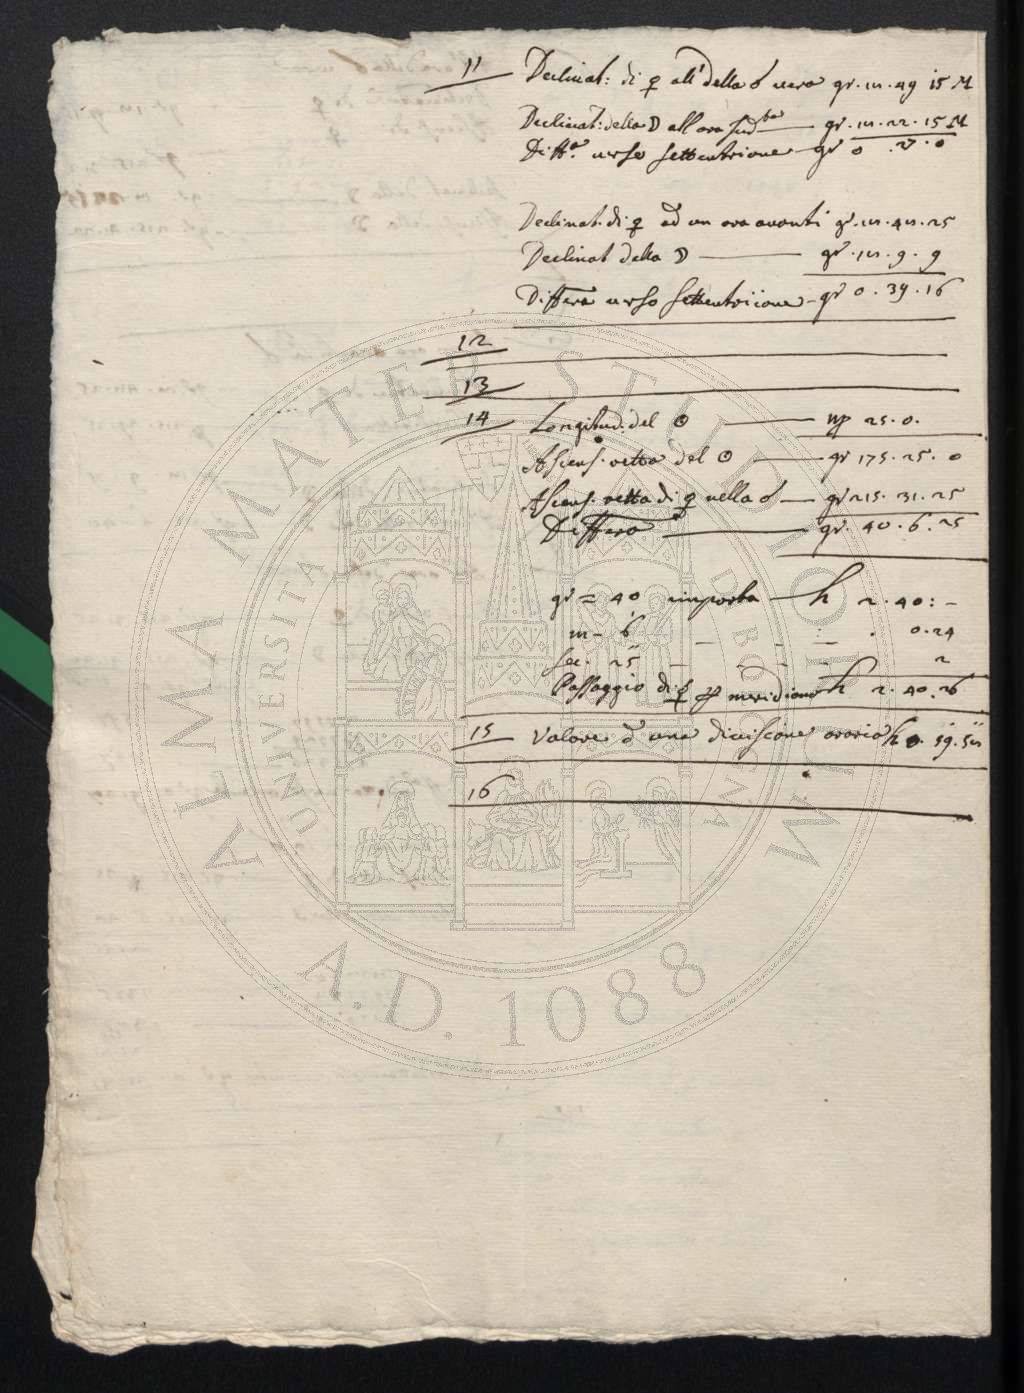 11 Declinat: di ♀ all' della ☌ vera gr. 12. 49 15 M
Declinat: della ☽ all ora sud.ta gr. 12. 22. 15 M
Diffa. verso settentrione gr 0 . 27 . 0
Declinat. di ♀ ad un ora avanti gr. 12. 48. 25
Declinat della ☽ gr. 12. 9. 9
Differa verso settentrione gr 0. 39. 16
12
13
14 Longitud. del ☉ ♍ 25. 0.
Ascens. retta del ☉ gr 175. 25. 0
Ascens. retta di ♀ nella ☌ gr 215. 31. 25
Differa gr. 40. 6. 25
gr = 40 importa h 2. 40: -
m - 6 0. 24
sec. 25 2
Passaggio di ♀ pr meridiano h 2. 40. 26
15 Valore d una divisione oraria h 0. 59. 52
16
ALMA MATER STUDIORUM
UNIVERSITÀ DI BOLOGNA
A.D. 1088